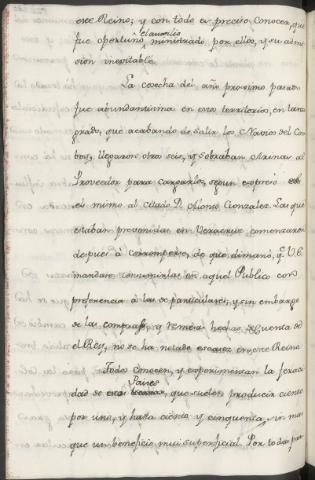 este Reino; y con todo es preciso conocer, que
fue oportuno, el auxilio ministrado por ellos, y su admi
sion inevitable.
La cosecha del año proximo pasado
fue abundantisima en esos territorios, en tanto
grado, que acabando de salir los Navios del Com
boy, llegaron otros seis, y sobraban Arinas al
Proveedor para cargarles, segun expresó
el mismo al citado D. Alonso Gonzalez. Las que
estaban prevenidas en Veracruz comenzaron
despues à corromperse, de que dimanó, q.e V.E.
mandase consumirlas en aquel Publico con
preferencia à las de particulares; y sin embargo
de las compras, y demás hechas de cuenta de
el Rey, no se ha notado escasez en ese Reino
Todos conocen, y experimentan la feraci
dad de esos Paises, que suelen producir ciento
por uno, y hasta ciento y cinquenta, sin mas
que un beneficio mui superficial. Por todas par